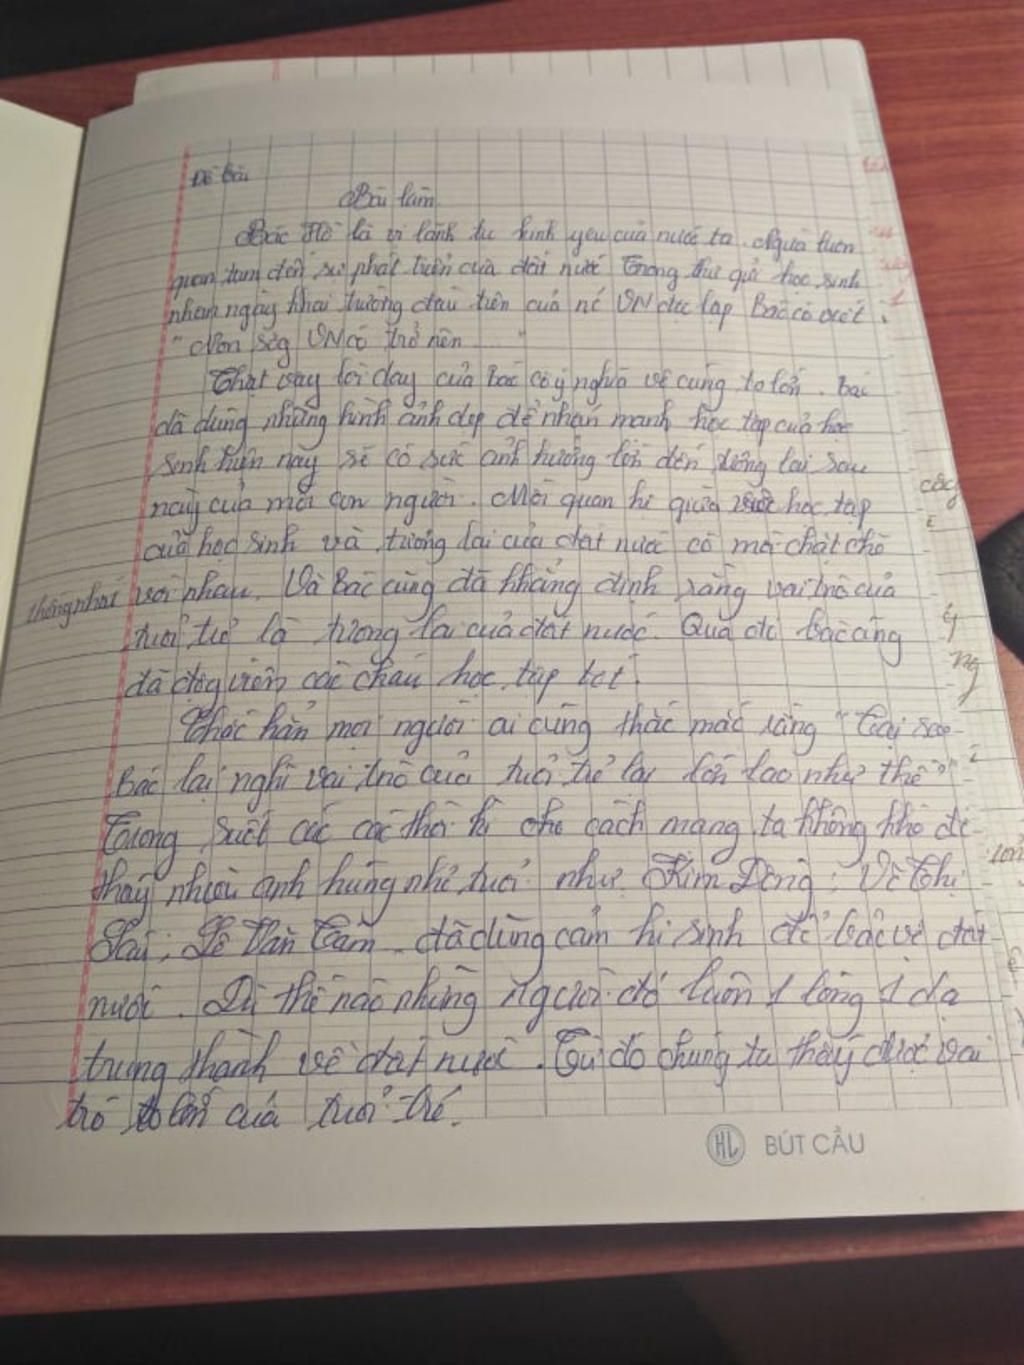 Đề bài
Bài làm
Bác Hồ là vị lãnh tụ kính yêu của nước ta. Người luôn
quan tâm đến sự phát triển của đất nước Trong thư gửi học sinh
nhân ngày khai trường đầu tiên của nc VN độc lập Bác có viết :
" Non sôg VN có trở nên ..... "
Thật vậy lời dạy của Bác có ý nghĩa vô cùng to lớn. Bác
đã dùng những hình ảnh đẹp để nhấn mạnh học tập của học
sinh hiện nay sẽ có sức ảnh hưởng lớn đến tương lai sau
này của mỗi con người. Mối quan hệ giữa việc học tập
của học sinh và tương lai của đất nước có mối chặt chẽ
thống nhất với nhau. Và Bác cũng đã khẳng định rằng vai trò của
tuổi trẻ là tương lai của đất nước. Qua đó Bác cũng
đã độg viên các cháu học tập tốt.
Chắc hẳn mọi người ai cũng thắc mắc rằng "Tại sao
Bác lại nghĩ vai trò của tuổi trẻ lại lớn lao như thế"
Trong suốt các các thời kì cho cách mạng ta không khó để
thấy nhiều anh hùng nhỏ tuổi như Kim Đồng ; Võ Thị
Sáu ; Lê Văn Tám đã dũng cảm hi sinh để bảo vệ đất
nước. Dù thế nào những người đó luôn 1 lòng 1 dạ
trung thành về đất nước. Từ đó chúng ta thấy được vai
trò to lớn của tuổi trẻ.
HL BÚT CẦU